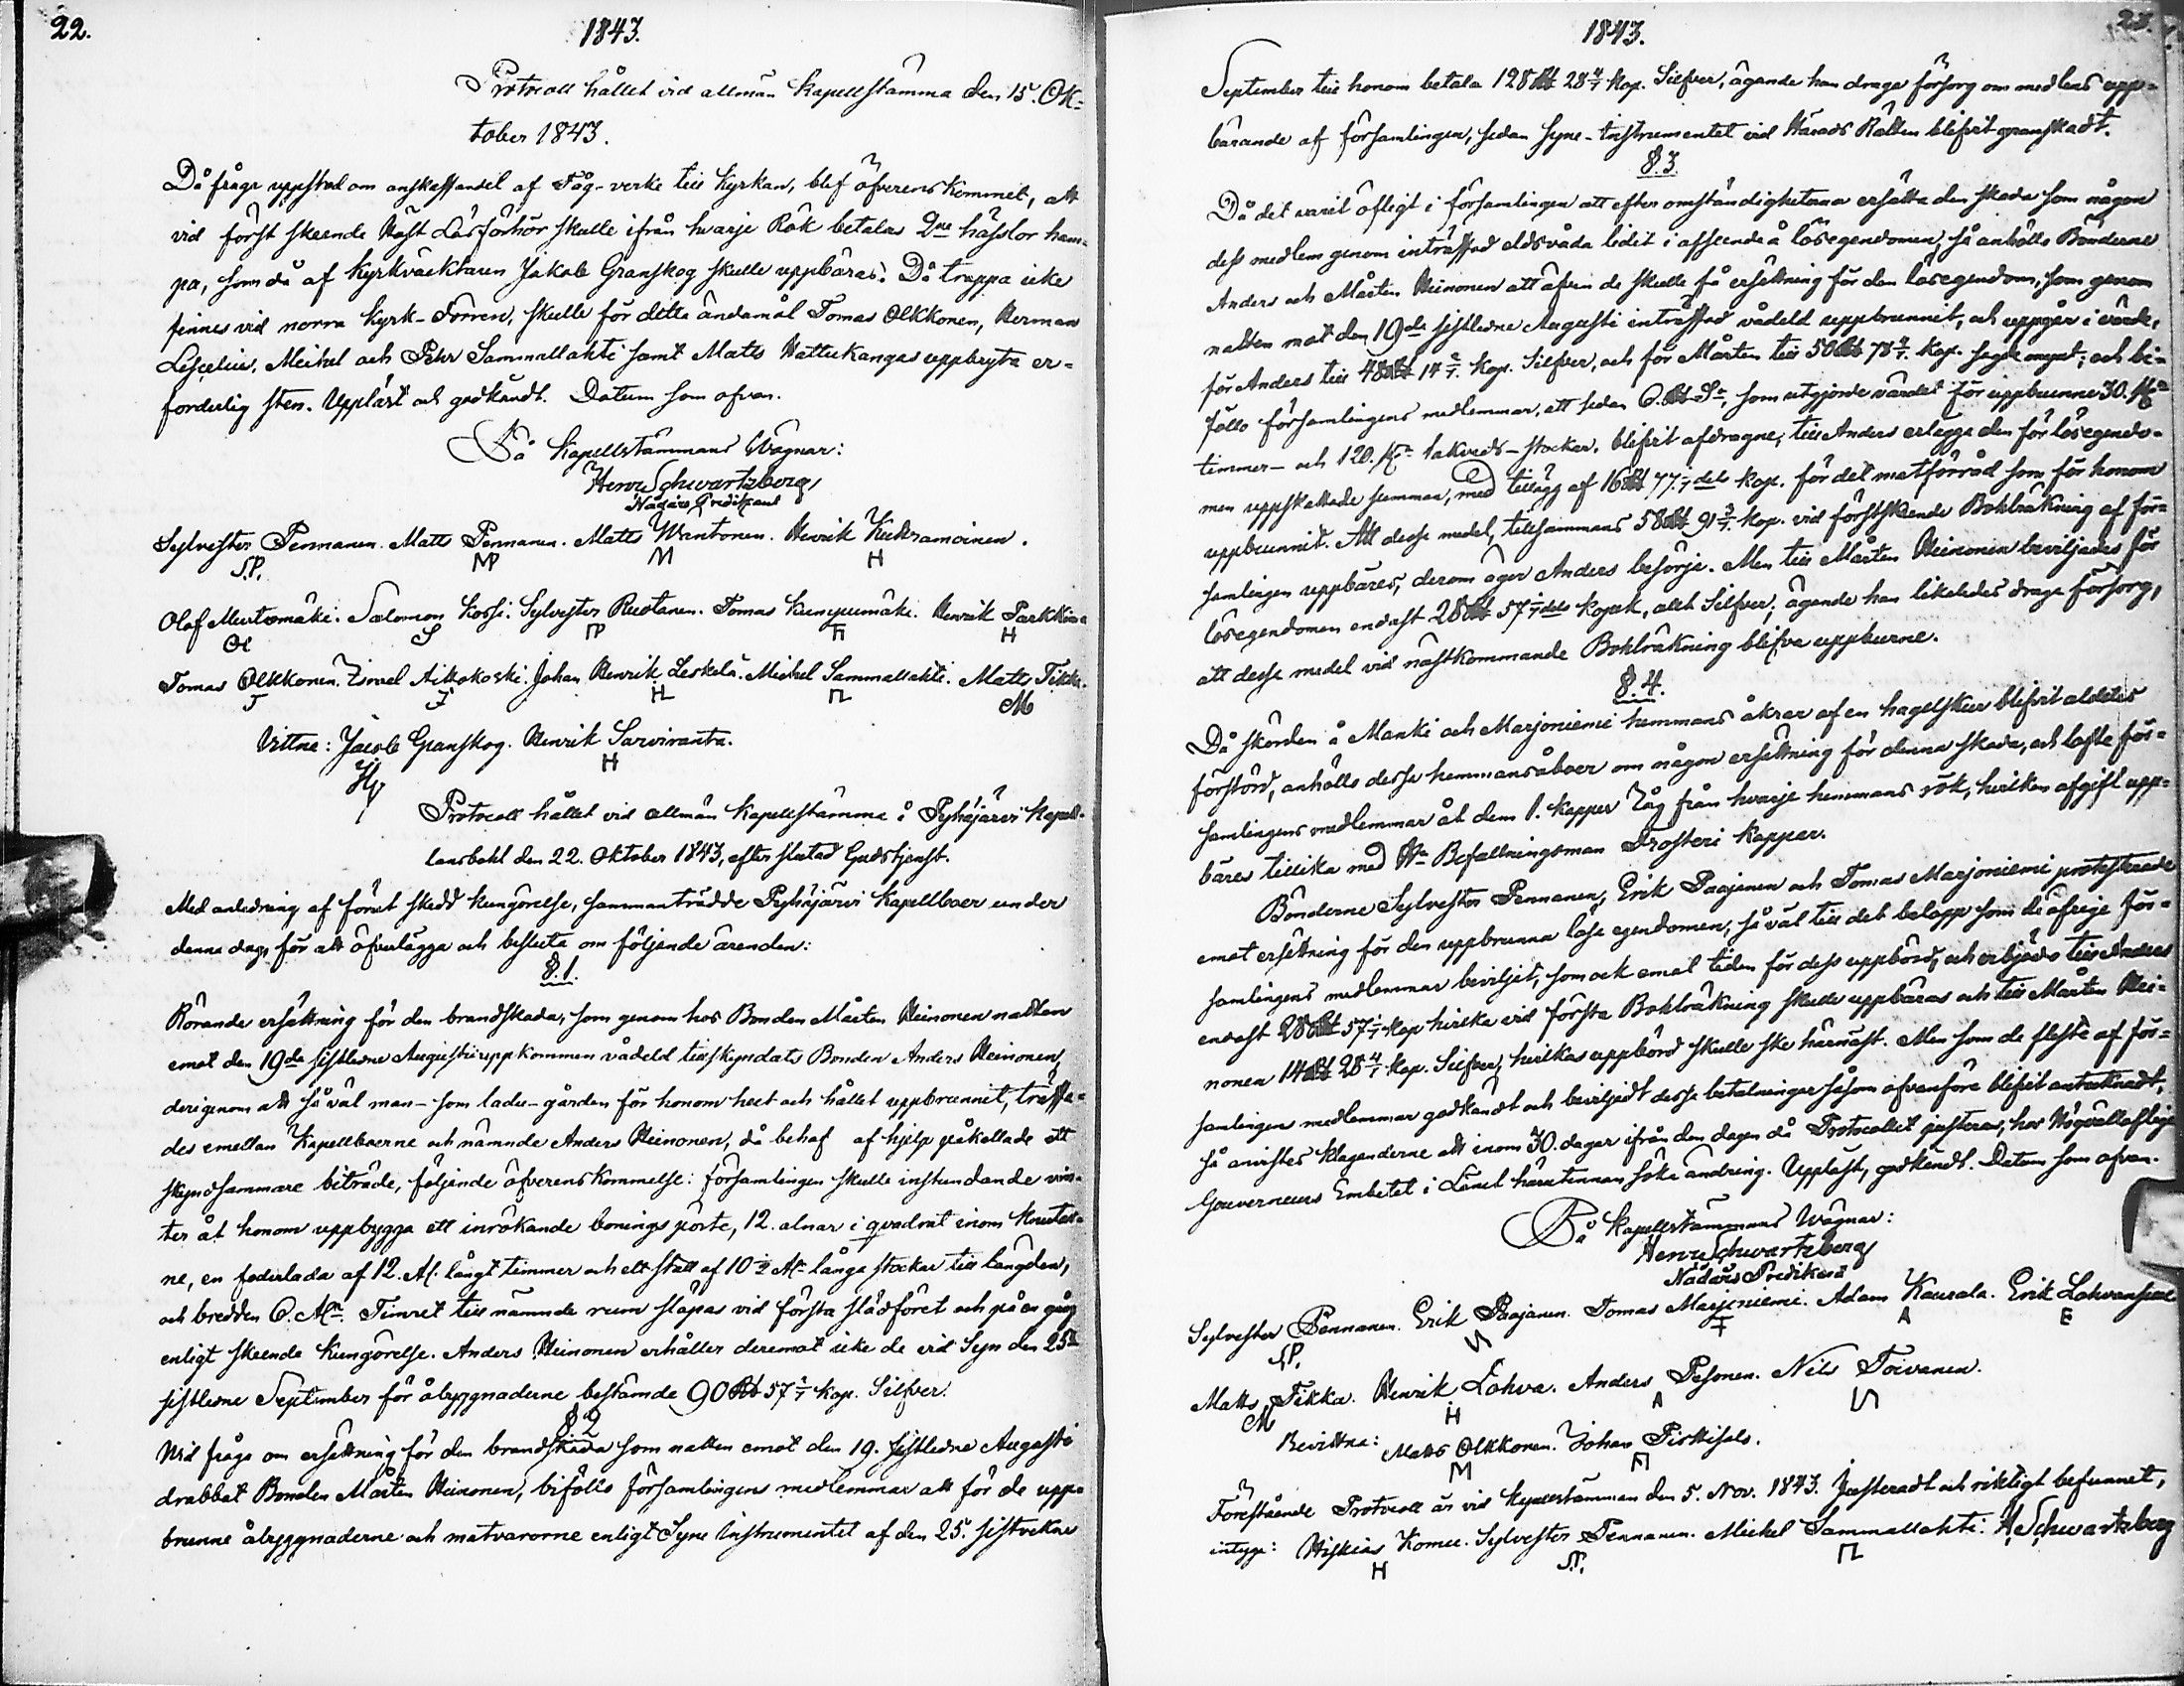 22.
1843.
Protocoll hållet vid allmän Kapellstämma den 15. Ok=
tober 1843.
Då fråga uppstod om anskaffandet af Tåg-verke till Kyrkan, blef öfverenskommet, att
vid först skeende Höst Läsförhör skulle ifrån hvarje Rök betalas 2ne hässlor ham-
pa, som då af Kyrkväcktaren Jakob Granskog skulle uppbäras. Då trappa icke
finnes vid norra Kyrk-Dörren, skulle för detta ändamål Tomas Olkkonen, Herman
Lescelius, Meikel och Pehr Sammallahti samt Matts Hattukangas uppbryta er=
forderlig sten. Uppläst och godkändt. Datum som ofvan.
På Kapellstämmans Wägnar:
Henr Schwartzberg
Nådårs Predikant
Sylvester Pennanen. Matts Pennanen. Matts Wantonen. Henrik Kukramoinen.
S.P. MP M H
Olof Murtomäki. Salomon Kossi. Sylvester Ruotanen. Tomas Kumpumäki. Henrik Parkkin
Tomas Olkkonen. Israel Aittokoski. Johan Henrik Leskelä. Michel Sammallahti. Matts Tikka.
Vittne: Jacob Granskog. Henrik Sarviranta.
H
Protocoll hållet vid allmän Kapellstämma i Pyhäjärvi Kapel-
lansbohl den 22. Oktober 1843, efter slutad Gudstjenst.
Med anledning af förut skedd kungörelse, sammanträdde Pyhäjärvi Kapellboer under
denna dag, för att öfverlägga och besluta om följande ärenden:
§.1.
Rörande ersättning för den brandskada, som genom hos Bonden Mårten Heinonen natten
emot den 19de sistledne Augusti uppkommen vådeld tillskyndats Bonden Anders Heinonen,
derigenom att så väl man- som ladu-gården för honom helt och hållet uppbrunnit, träffa-
des emellan Kapellboerne och nämnde Anders Heinonen, då behof af hjelp påkallade ett
skyndsammare biträde, följande öfverenskommelse: Församlingen skulle instundande vin-
ter åt honom uppbygga ett inrökande bonings pörte, 12. alnar i qvadrat inom knutar-
ne, en foderlada af 12. Al. långt timmer och ett stall af 10½ Aln långa stockar till längden,
och bredden 6. Aln. Timret till nämnde rum släpas vid första slädföret och på en gång
enligt skeende Kungörelse. Anders Heinonen erhåller deremot icke de vid Syn den 25te
sistledne September för åbyggnaderne bestämde 90 Rbl 57 1/7 kop. Silfver.
§.2
Wid fråga om ersättning för den brandskada som natten emot den 19. sistledne Augusti
drabbat Bonden Mårten Heinonen, biföllo församlingens medlemmar att för de upp-
brunne åbyggnaderne och matvarorne enligt Syne Instrumentet af den 25. sistvekne
1843.
23.
September till honom betala 128 Rbl 28 4/7 kop. Silfver, ägande han draga försorg om medlens upp=
bärande af församlingen, sedan Syne-instrumentet vid Härads Rätten blifvit granskadt.
§.3.
Då det varit öfligt i församlingen att efter omständigheterna ersätta den skada som någon
dess medlem genom inträffad eldsvåda lidit i afseende å lösegendomen, så anhöllo Bönderne
Anders och Mårten Heinonen att äfven de skulle få ersättning för den lösegendom, som genom
natten mot den 19de sistledne Augusti inträffad vådeld uppbrunnit, och uppgår i värde,
för Anders till 48 Rbl 14 2/7 kop. Silfver, och för Mårten till 50 Rbl 78 4/7 kop. sagde mynt; och bi=
föllo församlingens medlemmar, att sedan 6. Rbl Sr, som utgjorde värdet för uppbrunne 30. st
timmer- och 120. st. takveds-stockar, blifvit afdragne, till Anders erlägga den för lösegendo-
men uppskattade summan, med tillägg af 16 Rbl 77 1/7 dels kop. för det matförråd som för honom
uppbrunnit. Att desse medel, tillsammans 58 Rbl 91 3/7 kop. vid förstskeende Bohlräkning af för-
samlingen uppbäres, derom äger Anders besörja. Men till Mårten Heinonen beviljades för
lösegendomen endast 28 Rbl 57 1/7 dels kopek, allt Silfver, ägande han likaledes draga försorg,
att desse medel vid nästkommande Bohlräkning blifva uppburne.
§.4.
Då skörden å Manki och Marjoniemi hemmans åkrar af en hagelskur blifvit aldeles
förstörd, anhöllo desse hemmansåboer om någon ersättning för denna skada, och lofte för=
samlingens medlemmar åt dem 1. kappar Råg från hvarje hemmans rök, hvilken afgift upp=
bäres tillika med Hr Befallningsman Frosteri kappar.
Bönderne Sylvester Pennanen, Erik Paajanen och Tomas Marjoniemi protesterade
emot ersättning för den uppbrunna lösa egendomen, så väl till det belopp som de öfrige för=
samlingens medlemmar beviljat, som ock emot tiden för dess uppbörd, och erbjödo till Anders
endast 28 Rbl 57 1/7 kop hvilka vid första Bohlräkning skulle uppbäras och till Mårten Hei=
nonen 14 Rbl 28 4/7 kop. Silfver, hvilkas uppbörd skulle ske härnäst. Men som de fleste af för=
samlingens medlemmar godkändt och beviljadt desse betalningar såsom ofvanföre blifvit antecknadt,
så anvistes klaganderne att inom 30. dagar ifrån den dagen då Protocollet justeras, hos Högvällofliga
Gouverneurs Embetet i Länet häruttinnan söka ändring. Uppläst, godkändt. Datum som ofvan.
På Kapellstämmans Wägnar:
Henr Schwartzberg
Nådårs Predikant
Sylvester Pennanen. Erik Paajanen. Tomas Marjoniemi. Adam Kaurala. Erik Lohvansuu
S.P. T A E
Matts Tikka. Henrik Lohva. Anders Pesonen. Nils Toivanen.
M H A
Bevittna: Matts Olkkonen. Johan Pirttisalo.
M
Forestående Protocoll är vid Kapellstämman den 5. Nov. 1843. Justeradt och riktigt befunnet,
intyga: Hiskias Komu. Sylvester Pennanen. Mickel Sammallahti. H Schwartzberg
H S.P.